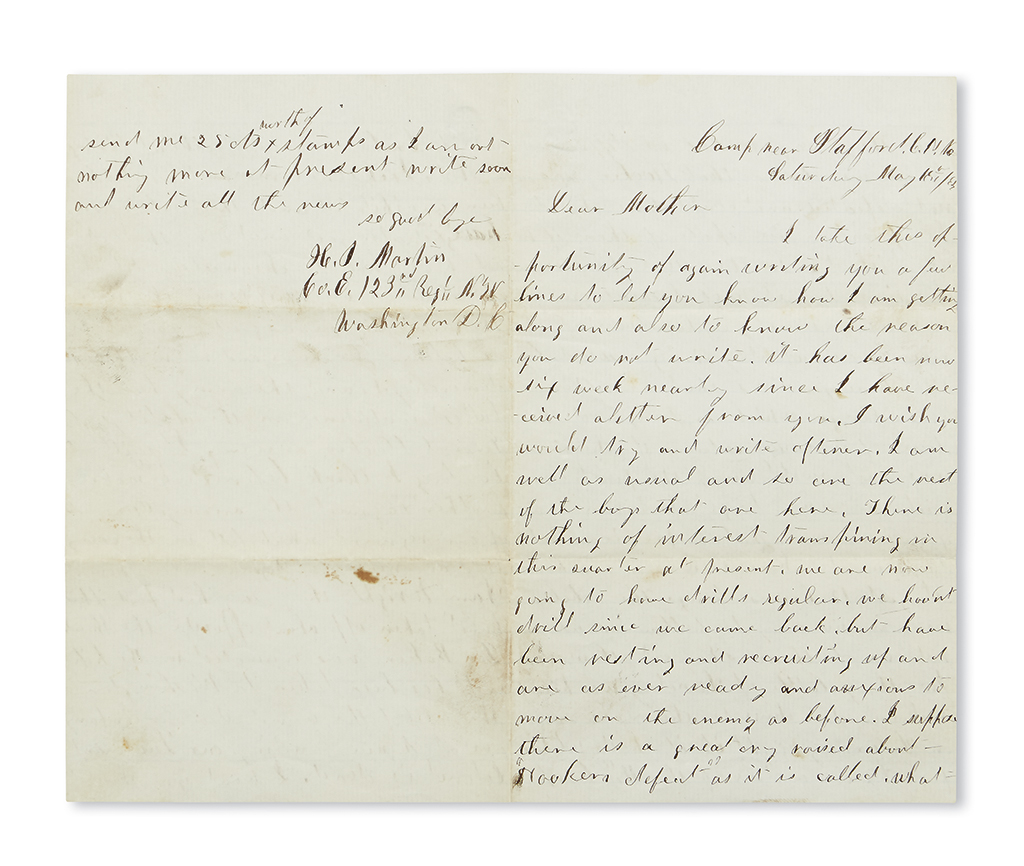 Camp near Stafford, C.H.
Saturday May /63
Dear Mother
I take this op-
-portunity of again writing you a few
lines to let you know how I am getting
along and also to know the reason
you do not write. it has been now
six week nearly since I have re-
-ceived a letter from you. I wish you
would try and write oftener. I am
well as usual and so are the rest
of the boys that are here. There is
nothing of interest transpining in
this quarter at present. we are now
going to have drills regular. we havent
drill since we came back. but have
been resting and recruiting up and
are as ever ready and anxious to
move on the enemy as before. I suppose
there is a great cry raised about
"Hookers defeat" as it is called. what-
send me 25 cts worth of stamps as I am out
nothing more at present write soon
and write all the news
so good bye
H. I. Martin
Co. E. 123rd Regt N.Y.V
Washington D. C